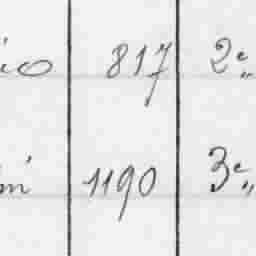 ico 817 2e „
m 1190 3e „